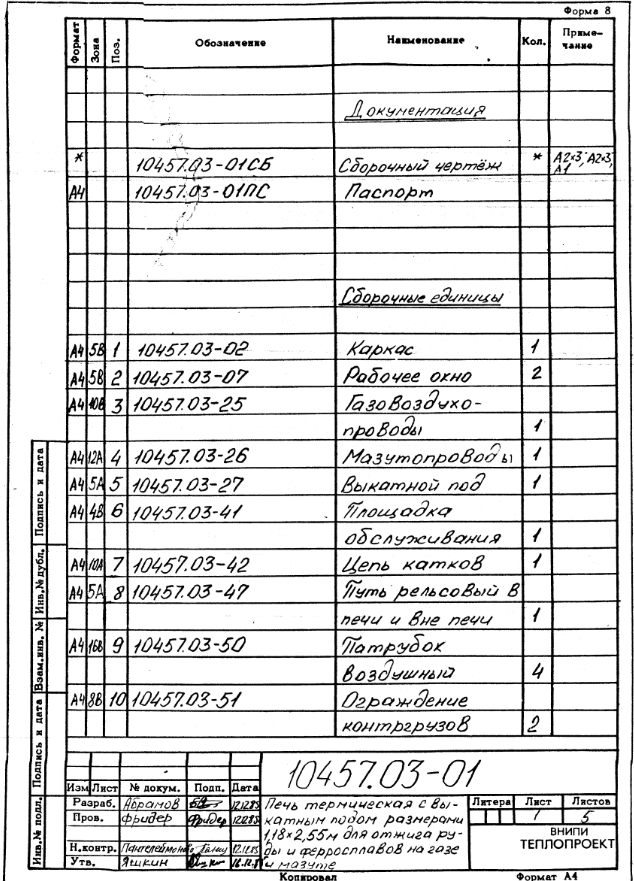 Форма 8
Формат Зона Поз. Обозначение Наименование Кол. Приме-
чание
Документация
* 10457.03-01СБ Сборочный чертёж * А2×3, А2×3,
А1
А4 10457.03-01ПС Паспорт
Сборочные единицы
А4 5В 1 10457.03-02 Каркас 1
А4 5В 2 10457.03-07 Рабочее окно 2
А4 10В 3 10457.03-25 Газовоздухо-
проводы 1
А4 12А 4 10457.03-26 Мазутопроводы 1
А4 5А 5 10457.03-27 Выкатной под 1
А4 4В 6 10457.03-41 Площадка
обслуживания 1
А4 10А 7 10457.03-42 Цепь катков 1
А4 5А 8 10457.03-47 Путь рельсовый в
печи и вне печи 1
А4 16В 9 10457.03-50 Патрубок
воздушный 4
А4 8В 10 10457.03-51 Ограждение
контргрузов 2
Подпись и дата
Инв.№ дубл.
Взам.инв. №
Подпись и дата
Инв.№ подл.
10457.03-01
Изм Лист № докум. Подп. Дата
Разраб. Абрамов 12.12.85
Пров. Фридер Фридер 12.12.85
Н.контр. Пантелеймонова 12.12.85
Утв. Яшкин
Печь термическая с вы-
катным подом размерами
1,18×2,55м для отжига ру-
ды и ферросплавов на газе
и мазуте
Литера Лист Листов
1 5
ВНИПИ
ТЕПЛОПРОЕКТ
Копировал Формат А4